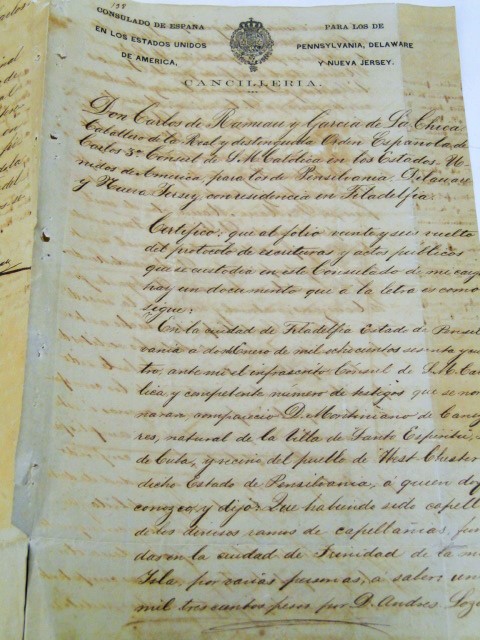 198
CONSULADO DE ESPAÑA
EN LOS ESTADOS UNIDOS
DE AMERICA,
PARA LOS DE
PENNSYLVANIA, DELAWARE
Y NUEVA JERSEY.
CANCILLERIA.
Don Carlos de Rameau y Garcia de La Checa
Caballero de la Real y distinguida Orden Española de
Carlos 3º Consul de S. M. Católica en los Estados-U-
nidos de America, para los de Pensilvania Delaware
y Nueva Jersey, con residencia en Filadelfia.
Certifico: que al folio veinte y seis vuelto
del protocolo de escrituras y actos públicos
que se custodia en este Consulado de mi cargo
hay un documento que a la letra es como
sigue:
En la ciudad de Filadelfia Estado de Pensil
vania a dos Enero de mil ochocientos sesenta y
tro, ante mi el infrascrito Consul de S. M. Ca
lica y competente numero de testigos que se no
naran, comparecio D. de
res, natural de la Villa de Santo Espiritu,
de Cuba, y vecino del pueblo de West Chester
dicho Estado de Pensilvania, á quien doy
conozco y dijo: Que habiendo sido capell
de los diversos ramos de capellanias, fun
dar en la ciudad de Trinidad de la m
Isla, por varias personas, a saber: un
mil trescientos pesos por D. Andres